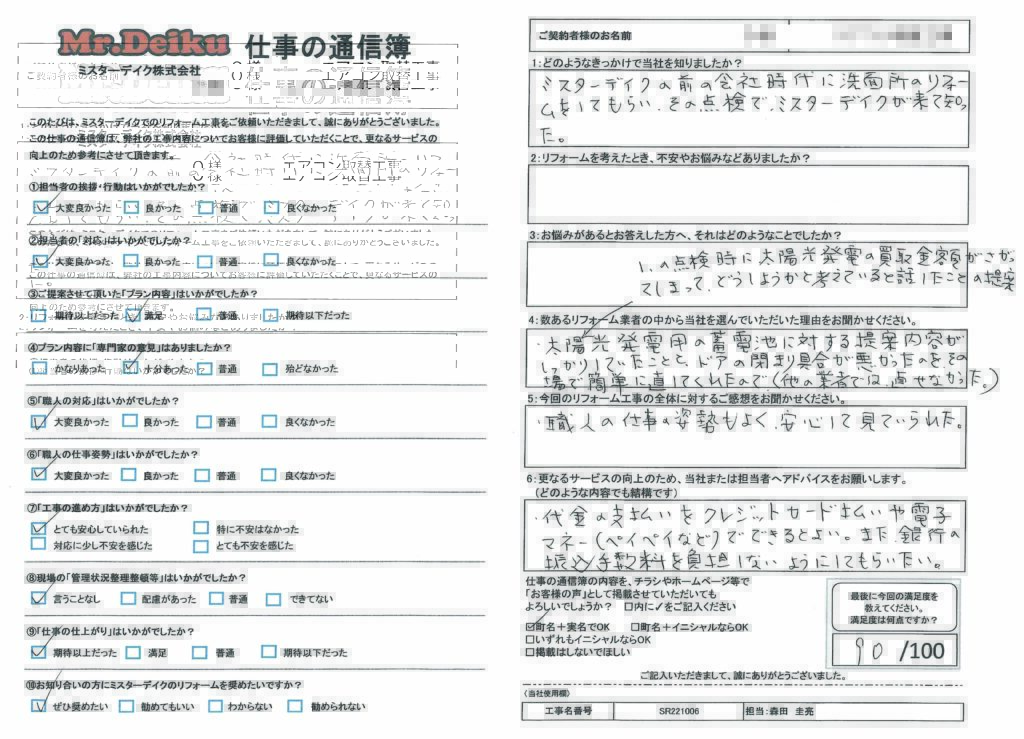 Mr.Deiku 仕事の通信簿
ミスターデイク株式会社
このたびは、ミスターデイクでのリフォーム工事をご依頼いただきまして、誠にありがとうございました。
この仕事の通信簿は、弊社の工事内容についてお客様に評価していただくことで、更なるサービスの
向上のため参考にさせて頂きます。
O様 エアコン取替工事
①担当者の挨拶・行動はいかがでしたか？
☑ 大変良かった □ 良かった □ 普通 □ 良くなかった
②担当者の「対応」はいかがでしたか？
☑ 大変良かった □ 良かった □ 普通 □ 良くなかった
③ご提案させて頂いた「プラン内容」はいかがでしたか？
□ 期待以上だった ☑ 満足 □ 普通 □ 期待以下だった
④プラン内容に「専門家の意見」はありましたか？
□ かなりあった ☑ 十分あった □ 普通 □ 殆どなかった
⑤「職人の対応」はいかがでしたか？
☑ 大変良かった □ 良かった □ 普通 □ 良くなかった
⑥「職人の仕事姿勢」はいかがでしたか？
☑ 大変良かった □ 良かった □ 普通 □ 良くなかった
⑦「工事の進め方」はいかがでしたか？
☑ とても安心していられた □ 特に不安はなかった
□ 対応に少し不安を感じた □ とても不安を感じた
⑧現場の「管理状況整理整頓等」はいかがでしたか？
☑ 言うことなし □ 配慮があった □ 普通 □ できてない
⑨「仕事の仕上がり」はいかがでしたか？
☑ 期待以上だった □ 満足 □ 普通 □ 期待以下だった
⑩お知り合いの方にミスターデイクのリフォームを奨めたいですか？
☑ ぜひ奨めたい □ 勧めてもいい □ わからない □ 勧められない
ご契約者様のお名前
1:どのようなきっかけで当社を知りましたか？
ミスターデイクの前の会社時代に洗面所のリフォー
ムをしてもらい、その点検でミスターデイクが来て知っ
た。
2:リフォームを考えたとき、不安やお悩みなどありましたか？
3:お悩みがあるとお答えした方へ、それはどのようなことでしたか？
1.の点検時に太陽光発電の買取金額がさがっ
てしまって、どうしようかと考えていると話したことの提案
4:数あるリフォーム業者の中から当社を選んでいただいた理由をお聞かせください。
・太陽光発電用の蓄電池に対する提案内容が
しっかりしていたことと、ドアの閉まり具合が悪かったのをその
場で簡単に直してくれたので(他の業者では直せなかった。)
5:今回のリフォーム工事の全体に対するご感想をお聞かせください。
・職人の仕事の姿勢もよく、安心して見ていられた。
6:更なるサービスの向上のため、当社または担当者へアドバイスをお願いします。
(どのような内容でも結構です)
・代金の支払いをクレジットカード払いや電子
マネー(ペイペイなど)でできるとよい。また、銀行の
振込手数料を負担しないようにしてもらいたい。
仕事の通信簿の内容を、チラシやホームページ等で
「お客様の声」として掲載させていただいても
よろしいでしょうか？ □内に✓をご記入ください
☑町名＋実名でOK □町名＋イニシャルならOK
□いずれもイニシャルならOK
□掲載はしないでほしい
最後に今回の満足度を
教えてください。
満足度は何点ですか？
90 /100
ご記入いただきまして、誠にありがとうございました。
〈当社使用欄〉
工事名番号 SR221006 担当：森田 圭亮